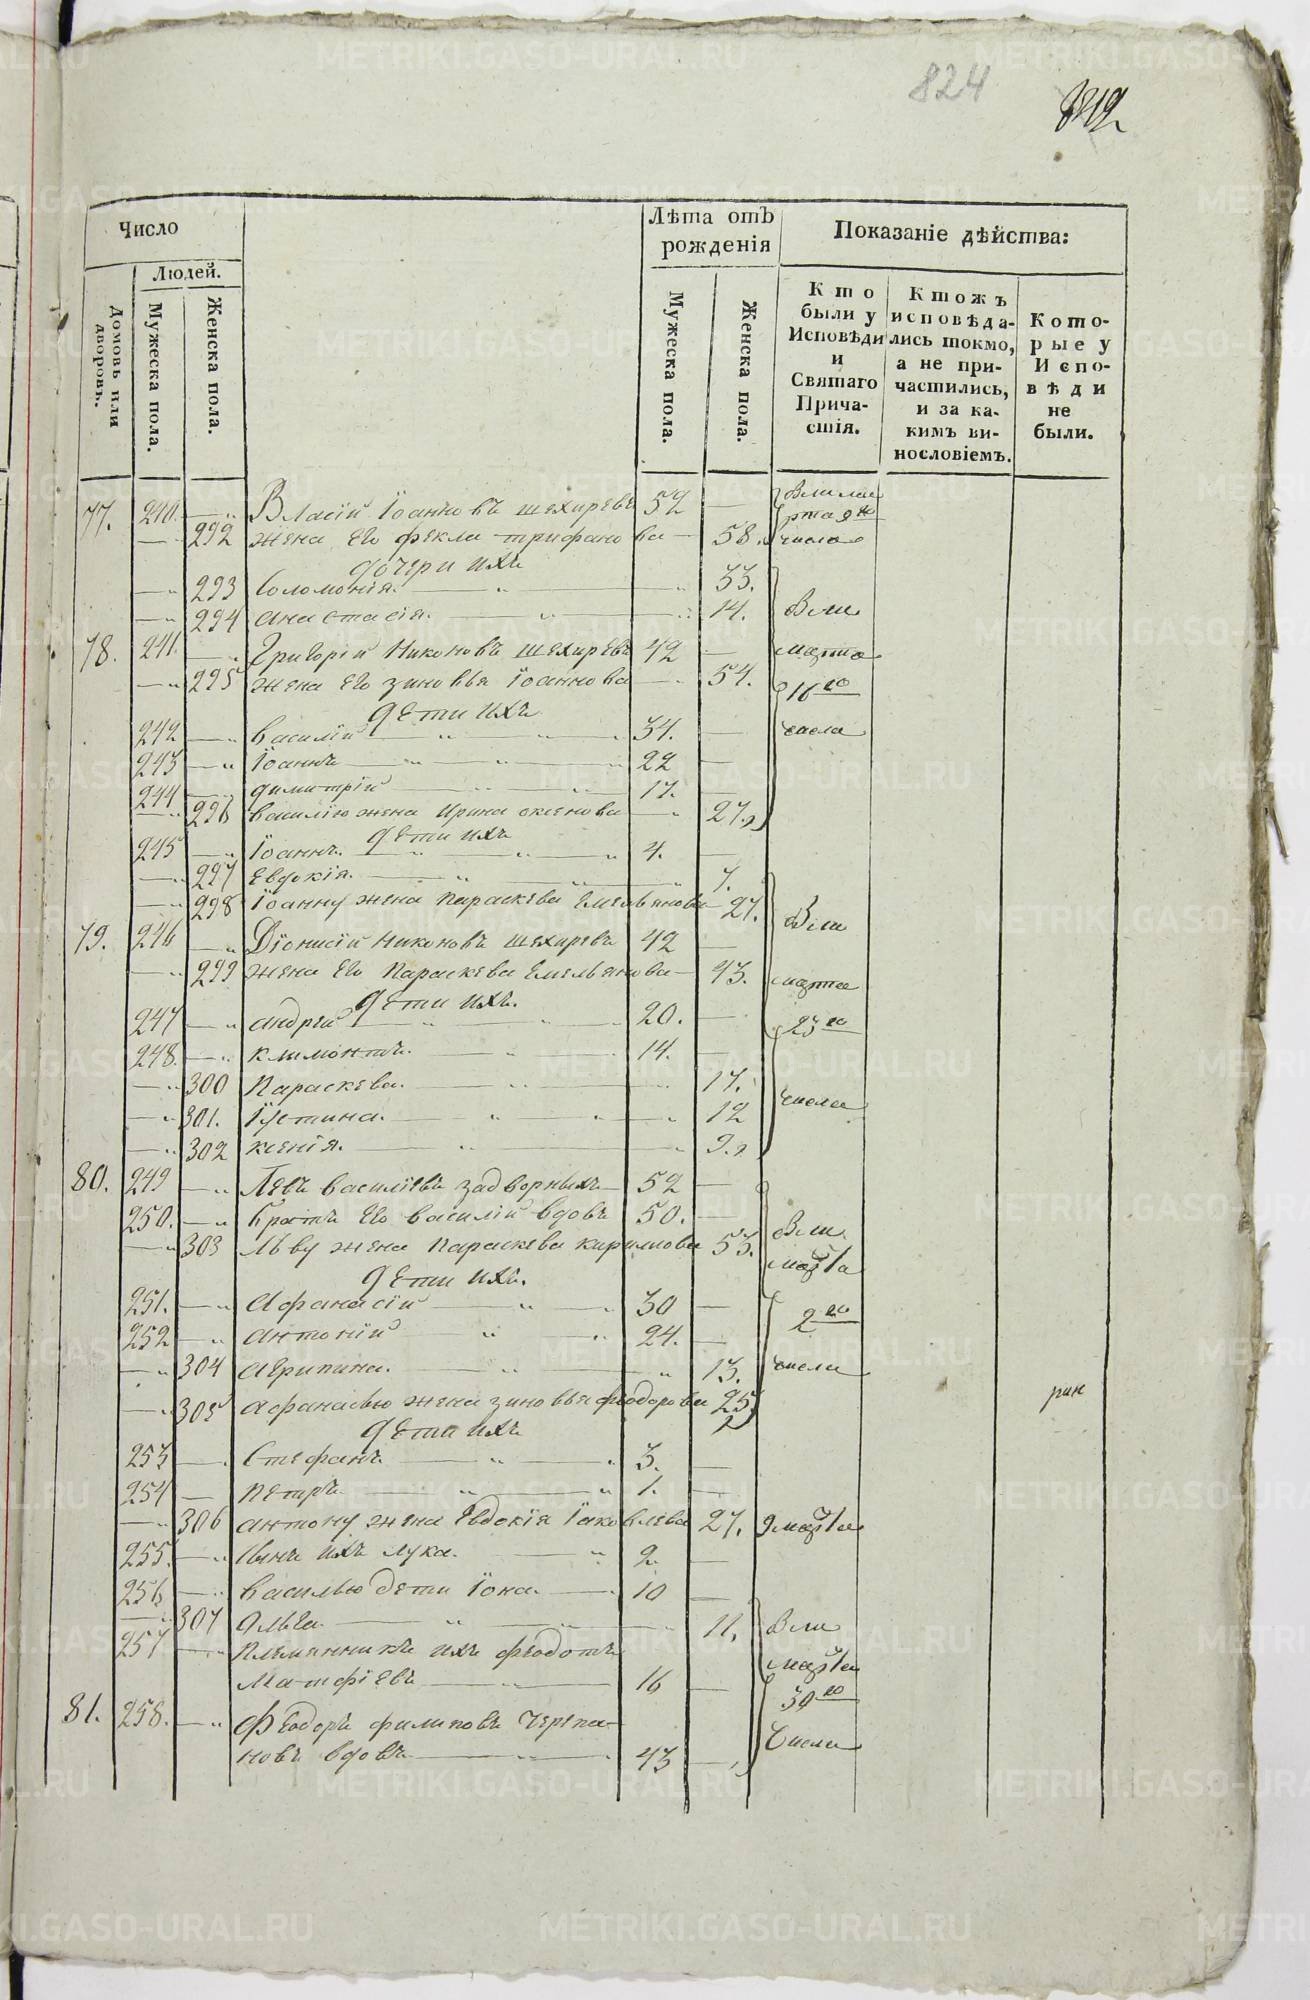 824
Число
Людей.
Домовъ или дворовъ.
Мужеска пола.
Женска пола.
Лѣта отъ рожденія
Мужеска пола.
Женска пола.
Показаніе дѣйства:
Кто были у Исповѣди и Святаго Причастія.
Ктожъ исповѣдались токмо, а не причастились, и за какимъ винословіемъ.
Которые у Исповѣди не были.
77. 240. — Власій Іоанновъ шехиревъ 52 —
— 292 жена его фекла трифанова — 58.
дочери ихъ
— 293 Соломонія. — 33.
— 294 анастасія. — 14.
78. 241. — Григорій Никоновъ шехиревъ 42 —
— 295 жена его зиновья Іоаннова — 54.
дети ихъ
242 — василій — 34. —
243 — Іоаннъ — 22 —
244 — димитрій — 17. —
— 296 василію жена Ирина — 27.
дети ихъ
245 — Іоаннъ. — 4. —
— 297 Евдокія. — 7.
— 298 Іоанну жена параскева Емельянова — 27.
79. 246 — Діонисій Никоновъ шехиревъ 42 —
— 299 жена его Параскева Емельянова — 43.
дети ихъ.
247 — андрей — 20. —
248. — климонтъ. — 14. —
— 300 Параскева. — 17.
— 301. Іустина. — 12
— 302 ксенія. — 9.
80. 249 — Левъ василіевъ задворныхъ — 52 —
250. — братъ его василій вдовъ 50. —
— 303 Льву жена параскева кирилова 53.
дети ихъ.
251. — Афанасій — 30 —
252 — антоній — 24. —
— 304 агрипина. — 13.
— 305 афанасью жена зиновья феодорова 25
дети ихъ
253 — Стефанъ — 3. —
254 — петръ — 1. —
— 306 антону жена Евдокія Іаковлева 27. 9 марта
255. — сынъ ихъ лука. — 2. —
256 — василью дети Іона. — 10 —
— 307 ольга. — 11.
257 — племянникъ ихъ феодотъ
Матфіевъ — 16 —
81. 258. — Феодоръ филиповъ черепа-
новъ вдовъ — 43 —
марта
16го
числа
марта
23го
числа
марта
2го
числа
марта
30го
числа
METRIKI.GASO-URAL.RU